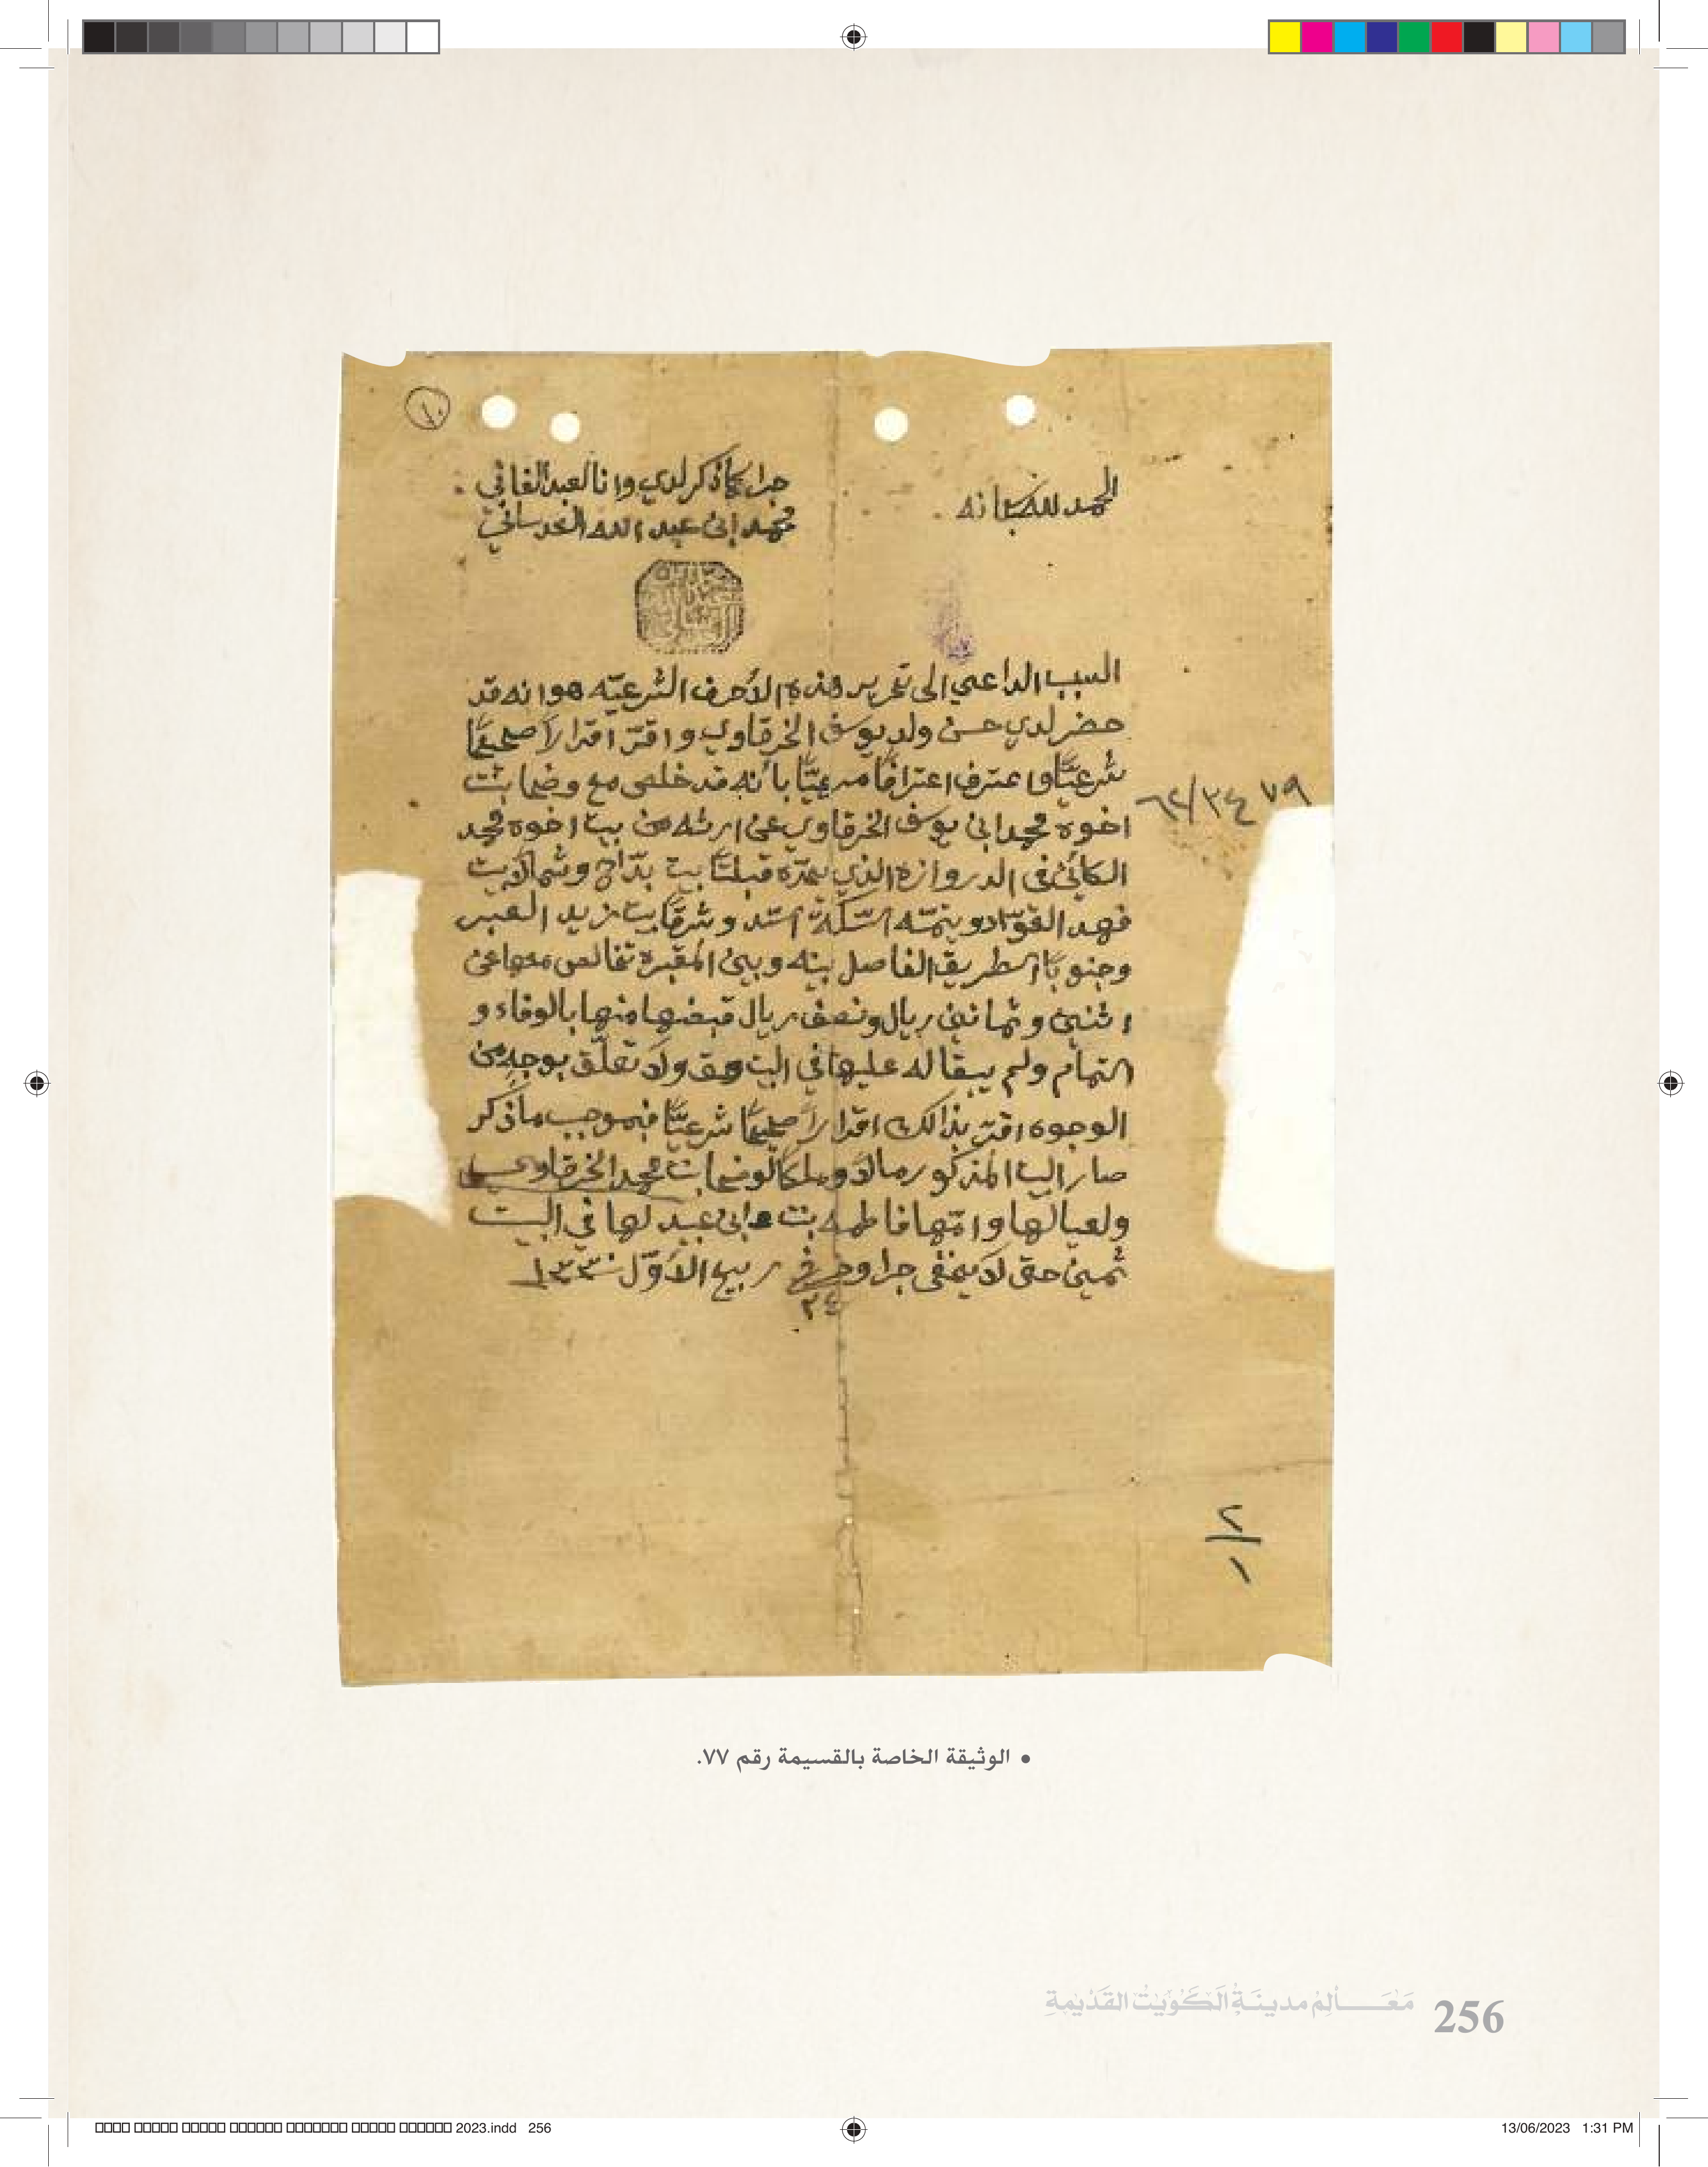 ١٠
الحمد لله سبحانه
جرا كما ذكر لدي وانا العبد الفاني
محمد ابن عبد الله العدساني
السبب الداعي الى تحرير هذه الأحرف الشرعيّه هو انه قد
حضر لدي حسن ولد يوسف الخرقاوي واقرّ اقرارًا صحيحًا
شرعيًّا واعترف اعترافًا مرعيًّا بأنه قد خلص مع وضحا بنت
اخوه محمد ابن يوسف الخرقاوي عن ارثه من بيت اخوه محمد
الكائن في الدروازه الذي يحدّه قبلتًا بيت بدّاح وشمالًا بيت
فهد القوّاد ويتمّه السّكّة السّد وشرقًا بيت زيد العبر
وجنوبًا الطريق الفاصل بينه وبين المقبرة تخالص معها عن
اثنين وثمانين ريال ونصف ريال قبضها منها بالوفاء و
التمام ولم يبقا له عليها في البيت حق ولا تعلّق بوجهٍ من
الوجوه اقرّ بذالك اقرارًا صحيحًا شرعيًّا فبموجب ما ذكر
صار البيت المذكور مالًا وملكًا لوضحا بنت محمد الخرقاوي
ولعيالها وامّها فاطمه بنت ابن عبيد لها في البيت
ثمين حتى لا يخفى جرا وحرر في ربيع الأوّل سنة ١٣٣٠
٢٤
٧٩ ٦٢/٣٤
٢/١
• الوثيقة الخاصة بالقسيمة رقم ٧٧.
مَعَالِمُ مدينَةِ الكُوَيْتِ القَدِيمَةِ 256
2023.indd 256
13/06/2023 1:31 PM